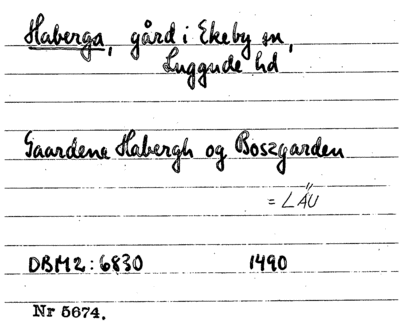 Haberga, gård i Ekeby sn,
Luggude hd
Gaardene Habergh og Boszgarden
= LÄU
DBM2:6830 1490
Nr 5674.